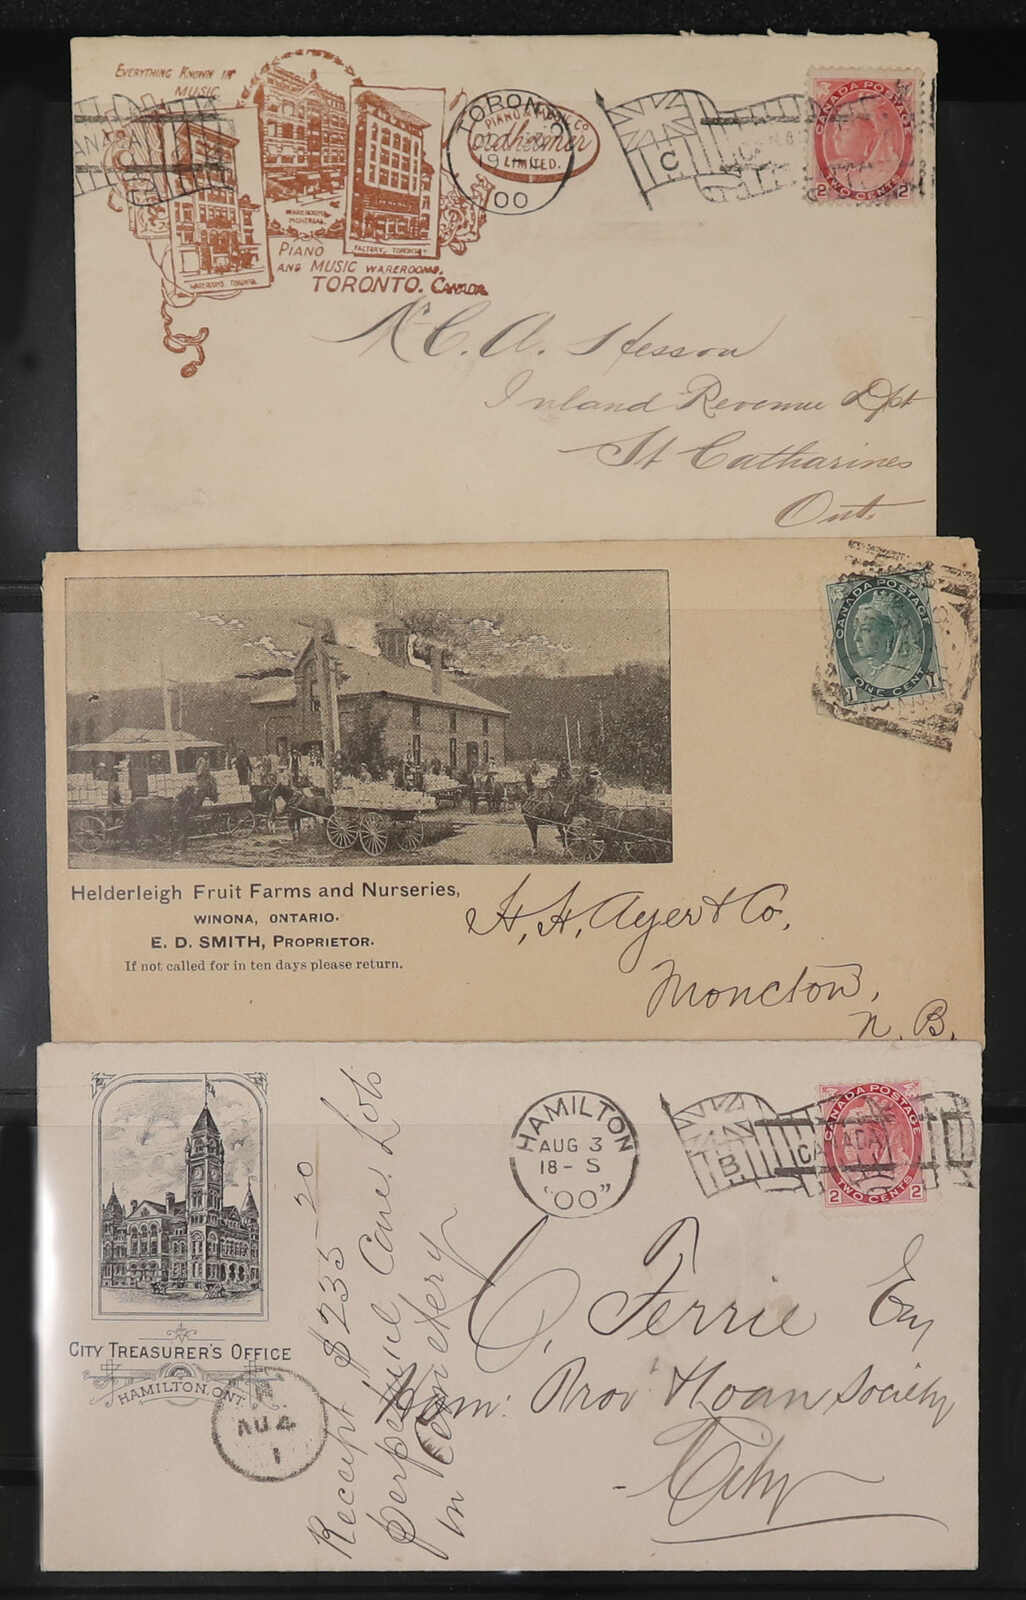 EVERYTHING KNOWN IN
MUSIC.
WAREROOMS, TORONTO.
WAREROOMS MONTREAL
FACTORY, TORONTO.
PIANO & MUSIC CO
Nordheimer
LIMITED.
PIANO
AND MUSIC WAREROOMS,
TORONTO. CANADA
TORONTO
19
00
C
CANADA POSTAGE
2 TWO CENTS 2
C. A. Hesson
Inland Revenue Dpt
St Catharines
Ont.
CANADA POSTAGE
1 ONE CENT 1
Helderleigh Fruit Farms and Nurseries,
WINONA, ONTARIO.
E. D. SMITH, PROPRIETOR.
If not called for in ten days please return.
H. H. Ayer & Co,
Moncton,
N. B.
CITY TREASURER'S OFFICE
HAMILTON, ONT
AU 4
1
Receipt $235 20
perpetual Care Lots
in Cemetery
HAMILTON
AUG 3
18 - S
"00"
B
CANADA
CANADA POSTAGE
2 TWO CENTS 2
C. Ferrie Esq
Ham: Prov & Loan Society
City